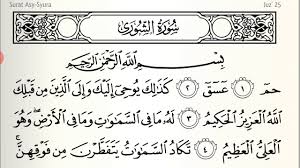 Surat Asy-Syura Juz' 25
سُورَةُ الشُّورَىٰ
بِسْمِ اللَّهِ الرَّحْمَٰنِ الرَّحِيمِ
حمٓ ١ عٓسٓقٓ ٢ كَذَٰلِكَ يُوحِىٓ إِلَيْكَ وَإِلَى الَّذِينَ مِن قَبْلِكَ
اللَّهُ الْعَزِيزُ الْحَكِيمُ ٣ لَهُۥ مَا فِى السَّمَٰوَٰتِ وَمَا فِى الْأَرْضِ ۖ وَهُوَ
الْعَلِىُّ الْعَظِيمُ ٤ تَكَادُ السَّمَٰوَٰتُ يَتَفَطَّرْنَ مِن فَوْقِهِنَّ ۚ